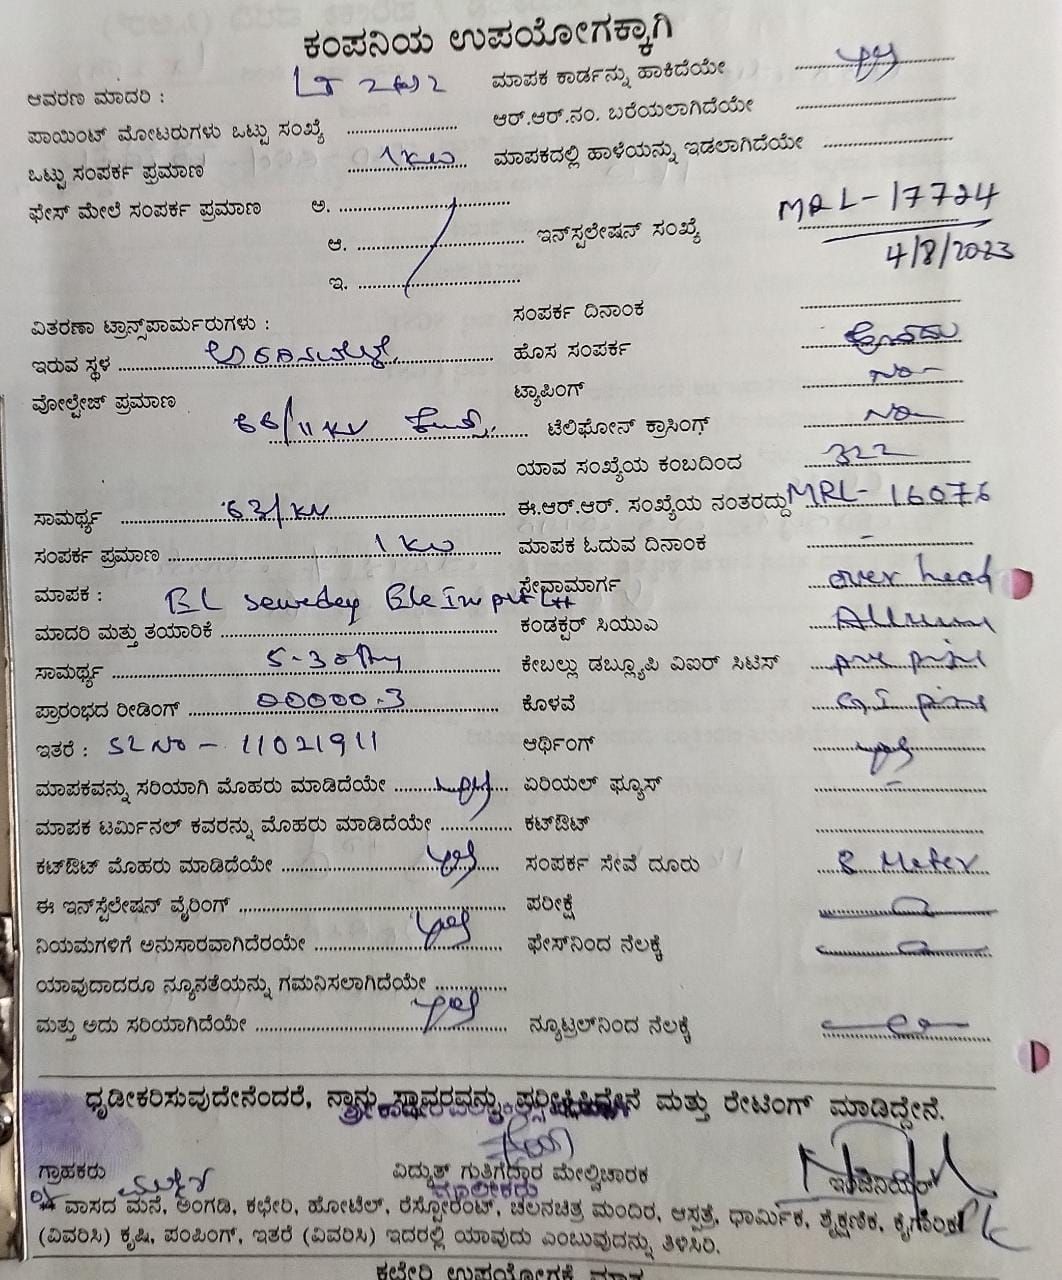 ಕಂಪನಿಯ ಉಪಯೋಗಕ್ಕಾಗಿ
ಆವರಣ ಮಾದರಿ : LT 2 ಮಾಪಕ ಕಾರ್ಡನ್ನು ಹಾಕಿದೆಯೇ yes
ಪಾಯಿಂಟ್ ಮೋಟರುಗಳು ಒಟ್ಟು ಸಂಖ್ಯೆ ಆರ್.ಆರ್.ನಂ. ಬರೆಯಲಾಗಿದೆಯೇ
ಒಟ್ಟು ಸಂಪರ್ಕ ಪ್ರಮಾಣ 1 KW ಮಾಪಕದಲ್ಲಿ ಹಾಳೆಯನ್ನು ಇಡಲಾಗಿದೆಯೇ
ಫೇಸ್ ಮೇಲೆ ಸಂಪರ್ಕ ಪ್ರಮಾಣ ಅ.
ಆ. ಇನ್‌ಸ್ಪಲೇಷನ್ ಸಂಖ್ಯೆ MRL-17724
4/8/2023
ಇ.
ವಿತರಣಾ ಟ್ರಾನ್ಸ್‌ಪಾರ್ಮರುಗಳು : ಸಂಪರ್ಕ ದಿನಾಂಕ
ಇರುವ ಸ್ಥಳ ಹೊಸ ಸಂಪರ್ಕ ಹೌದು
ವೋಲ್ಟೇಜ್ ಪ್ರಮಾಣ ಟ್ಯಾಪಿಂಗ್ No
66/11 KV ಟೆಲಿಫೋನ್ ಕ್ರಾಸಿಂಗ್ No
ಯಾವ ಸಂಖ್ಯೆಯ ಕಂಬದಿಂದ 322
ಸಾಮರ್ಥ್ಯ 63/KV ಈ.ಆರ್.ಆರ್. ಸಂಖ್ಯೆಯ ನಂತರದ್ದು MRL-16076
ಸಂಪರ್ಕ ಪ್ರಮಾಣ 1 KW ಮಾಪಕ ಓದುವ ದಿನಾಂಕ -
ಮಾಪಕ : ಸೇವಾಮಾರ್ಗ over head
ಮಾದರಿ ಮತ್ತು ತಯಾರಿಕೆ ಕಂಡಕ್ಟರ್ ಸಿಯುಎ
ಸಾಮರ್ಥ್ಯ 5-30 ಕೇಬಲ್ಲು ಡಬ್ಲ್ಯೂಪಿ ವಿಐರ್ ಸಿಟಿಸ್
ಪ್ರಾರಂಭದ ರೀಡಿಂಗ್ 00000.3 ಕೊಳವೆ G.I pipe
ಇತರೆ : SL No - 11021911 ಆರ್ಥಿಂಗ್ yes
ಮಾಪಕವನ್ನು ಸರಿಯಾಗಿ ಮೊಹರು ಮಾಡಿದೆಯೇ yes ಏರಿಯಲ್ ಫ್ಯೂಸ್ -
ಮಾಪಕ ಟರ್ಮಿನಲ್ ಕವರನ್ನು ಮೊಹರು ಮಾಡಿದೆಯೇ ಕಟ್‌ಔಟ್
ಕಟ್‌ಔಟ್ ಮೊಹರು ಮಾಡಿದೆಯೇ yes ಸಂಪರ್ಕ ಸೇವೆ ದೂರು 8 Meter
ಈ ಇನ್‌ಸ್ಟೆಲೇಷನ್ ವೈರಿಂಗ್ ಪರೀಕ್ಷೆ
ನಿಯಮಗಳಿಗೆ ಅನುಸಾರವಾಗಿದೆರಯೇ yes ಫೇಸ್‌ನಿಂದ ನೆಲಕ್ಕೆ
ಯಾವುದಾದರೂ ನ್ಯೂನತೆಯನ್ನು ಗಮನಿಸಲಾಗಿದೆಯೇ
ಮತ್ತು ಅದು ಸರಿಯಾಗಿದೆಯೇ yes ನ್ಯೂಟ್ರಲ್‌ನಿಂದ ನೆಲಕ್ಕೆ
ಧೃಡೀಕರಿಸುವುದೇನೆಂದರೆ, ನ್ನಾನು ಸ್ಥಾವರವನ್ನು ಪರೀಕ್ಷಿಸಿದ್ದೇನೆ ಮತ್ತು ರೇಟಿಂಗ್ ಮಾಡಿದ್ದೇನೆ.
ಗ್ರಾಹಕರು ವಿದ್ಯುತ್ ಗುತ್ತಿಗೆದ್ದಾರ ಮೇಲ್ವಿಚಾರಕ ಇಂಜಿನಿಯರ್
ಮಾಲೀಕರು
* ವಾಸದ ಮನೆ, ಅಂಗಡಿ, ಕಛೇರಿ, ಹೋಟೆಲ್, ರೆಸ್ಟೋರೆಂಟ್, ಚಲನಚಿತ್ರ ಮಂದಿರ, ಆಸ್ಪತ್ರೆ, ಧಾರ್ಮಿಕ, ಶೈಕ್ಷಣಿಕ, ಕೈಗಾರಿಕೆ
(ವಿವರಿಸಿ) ಕೃಷಿ, ಪಂಪಿಂಗ್, ಇತರೆ (ವಿವರಿಸಿ) ಇದರಲ್ಲಿ ಯಾವುದು ಎಂಬುವುದನ್ನು ತಿಳಿಸಿರಿ.
ಕಛೇರಿ ಉಪಯೋಗಕ್ಕೆ ಮಾತ್ರ